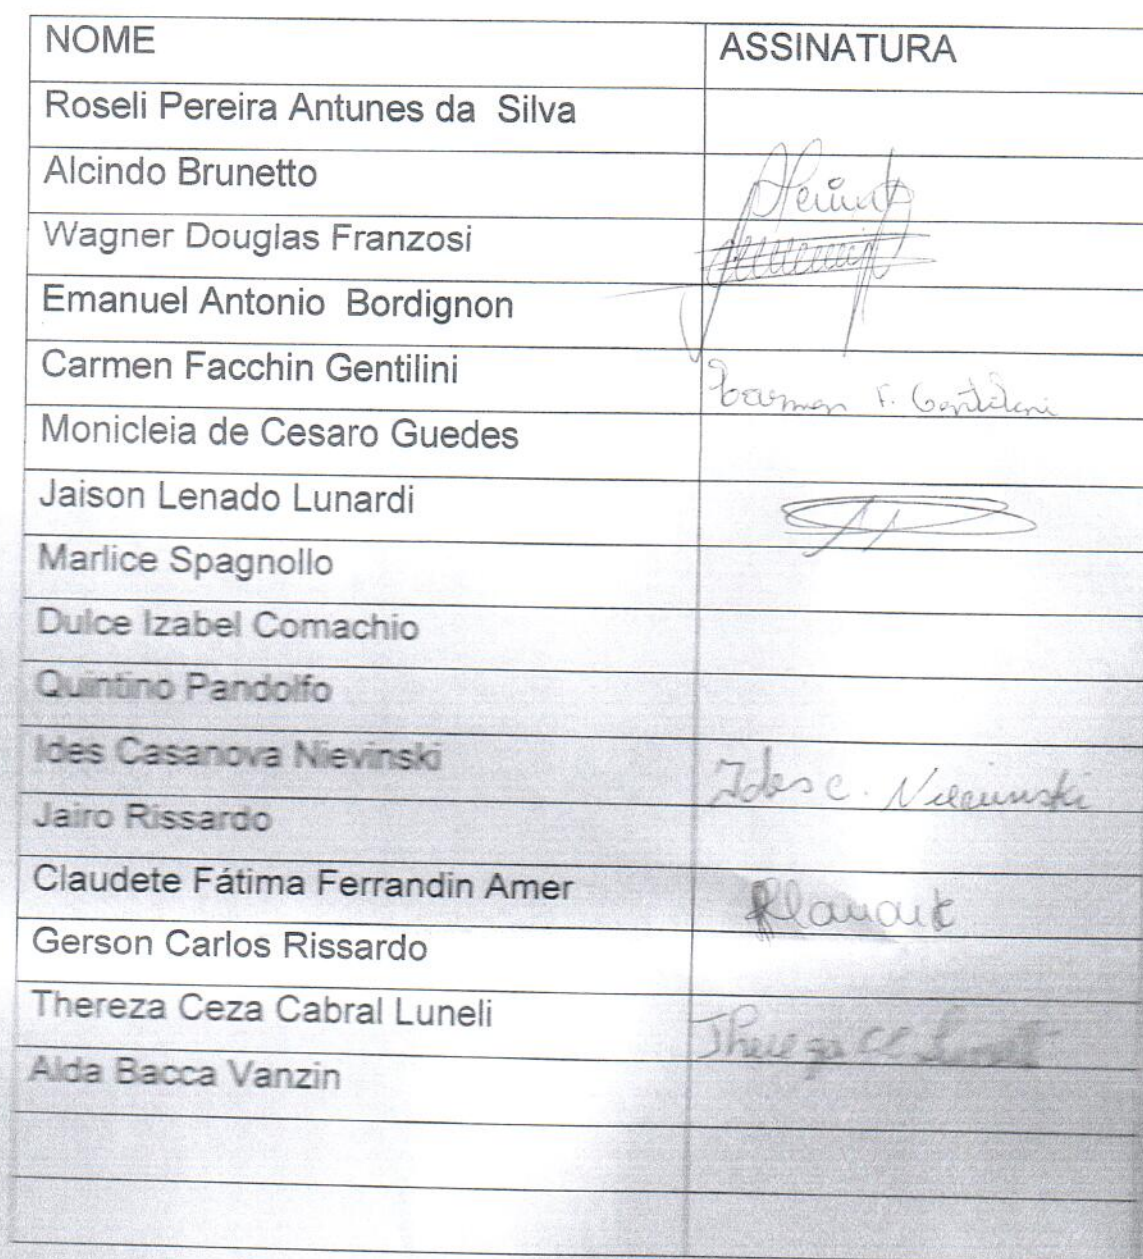 NOME ASSINATURA
Roseli Pereira Antunes da Silva
Alcindo Brunetto
Wagner Douglas Franzosi
Emanuel Antonio Bordignon
Carmen Facchin Gentilini Carmen F. Gentilini
Monicleia de Cesaro Guedes
Jaison Lenado Lunardi
Marlice Spagnollo
Dulce Izabel Comachio
Quintino Pandolfo
Ides Casanova Nievinski Ides C. Nievinski
Jairo Rissardo
Claudete Fátima Ferrandin Amer
Gerson Carlos Rissardo
Thereza Ceza Cabral Luneli Thereza
Alda Bacca Vanzin